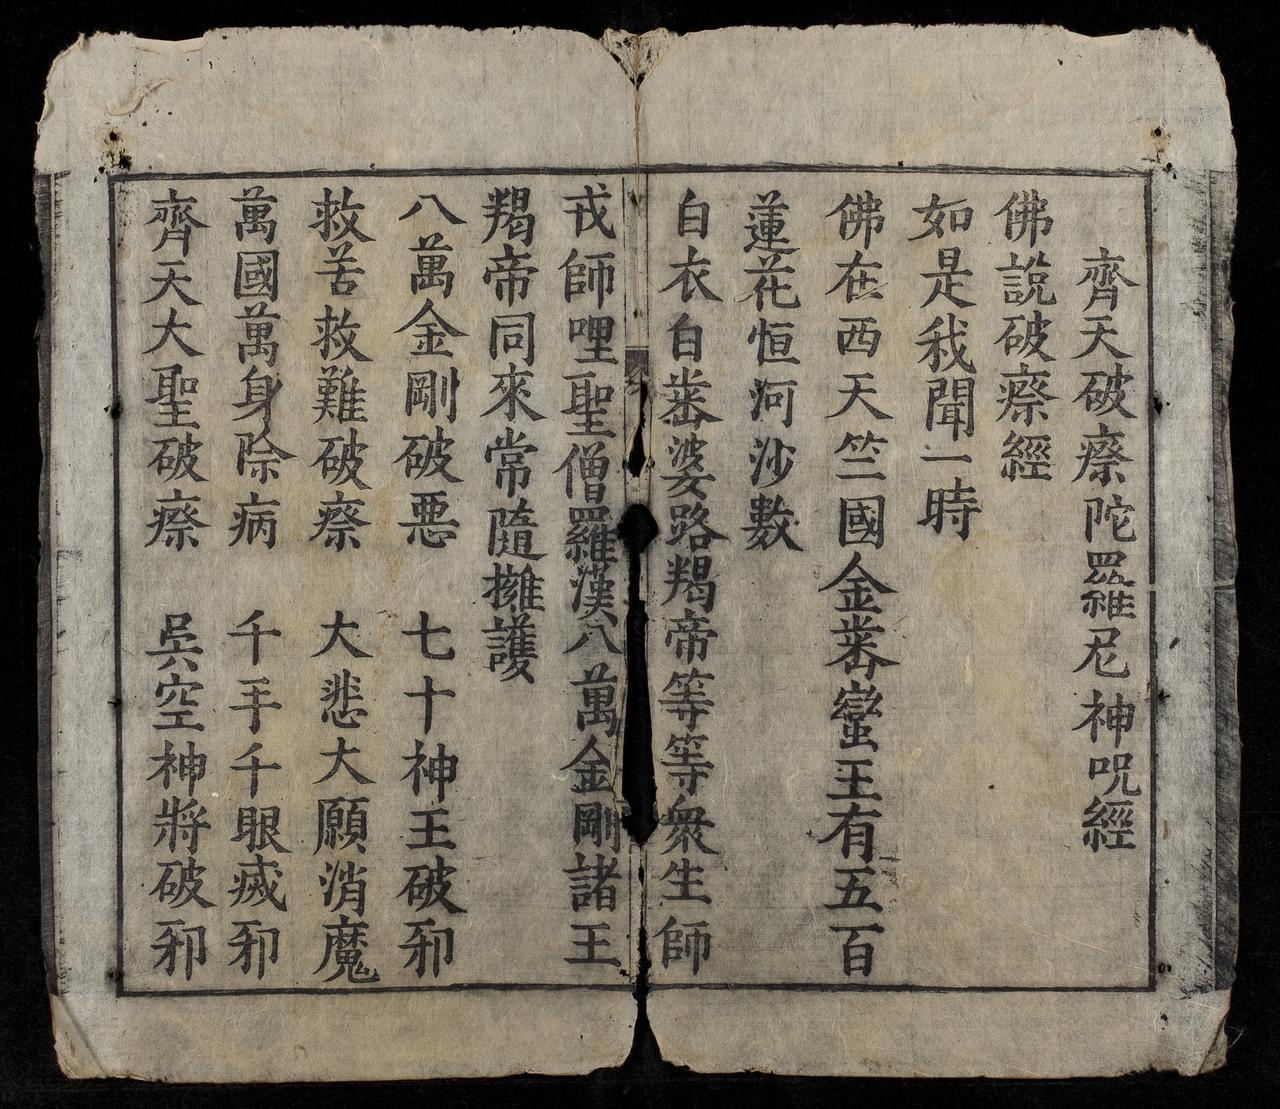 齊天破瘵陀羅尼神呪經
佛說破瘵經
如是我聞一時
佛在西天竺國金番蠻王有五百
蓮花恒河沙數
白衣白番婆路羯帝等等衆生師
戎師哩聖僧羅漢八萬金剛諸王
羯帝同來常隨擁護
八萬金剛破惡 七十神王破邪
救苦救難破瘵 大悲大願消魔
萬國萬身除病 千手千眼滅邪
齊天大聖破瘵 吳空神將破邪